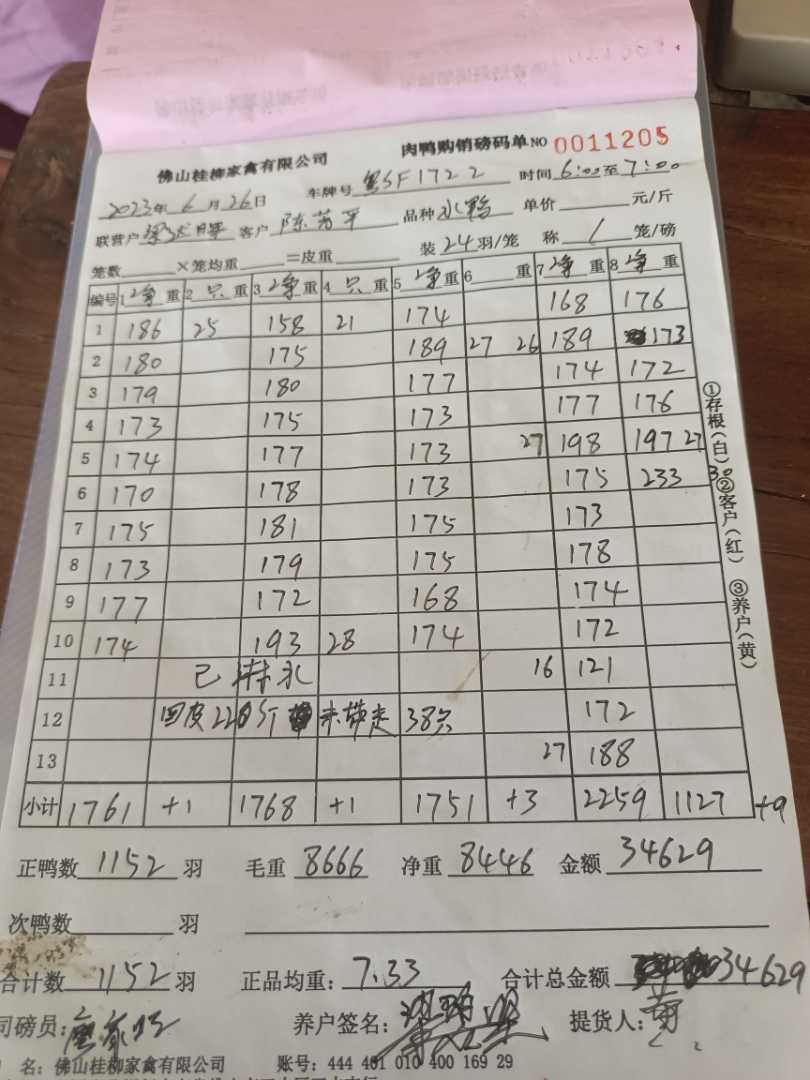 佛山桂柳家禽有限公司 肉鸭购销磅码单 NO 0011205
2023年6月26日 车牌号 SF1722 时间 6:00至7:00
联营户 客户 陈芳平 品种 水鸭 单价 元/斤
笼数 ×笼均重 =皮重 装24羽/笼 称1笼/磅
编号 1净重 2只重 3净重 4只重 5净重 6重 7净重 8净重
1 186 25 158 21 174 168 176
2 180 175 189 27 26 189 173
3 179 180 177 174 172
4 173 175 173 177 176
5 174 177 173 27 198 197 27
6 170 178 173 175 233 30
7 175 181 175 173
8 173 179 175 178
9 177 172 168 174
10 174 193 28 174 172
11 已 水 16 121
12 回皮220斤 未带走 38只 172
13 27 188
小计 1761 +1 1768 +1 1751 +3 2259 1127 +9
正鸭数 1152 羽 毛重 8666 净重 8446 金额 34629
次鸭数 羽
合计数 1152 羽 正品均重: 7.33 合计总金额 34629
司磅员: 养户签名: 提货人:
名: 佛山桂柳家禽有限公司 账号: 444 401 010 400 169 29
①存根(白)②客户(红) ③养户(黄)